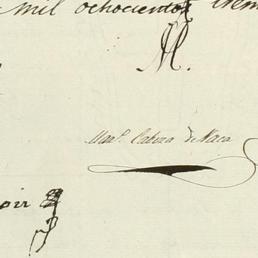 mil ochocientos trein
M.
Man.l Cabeza de Vaca